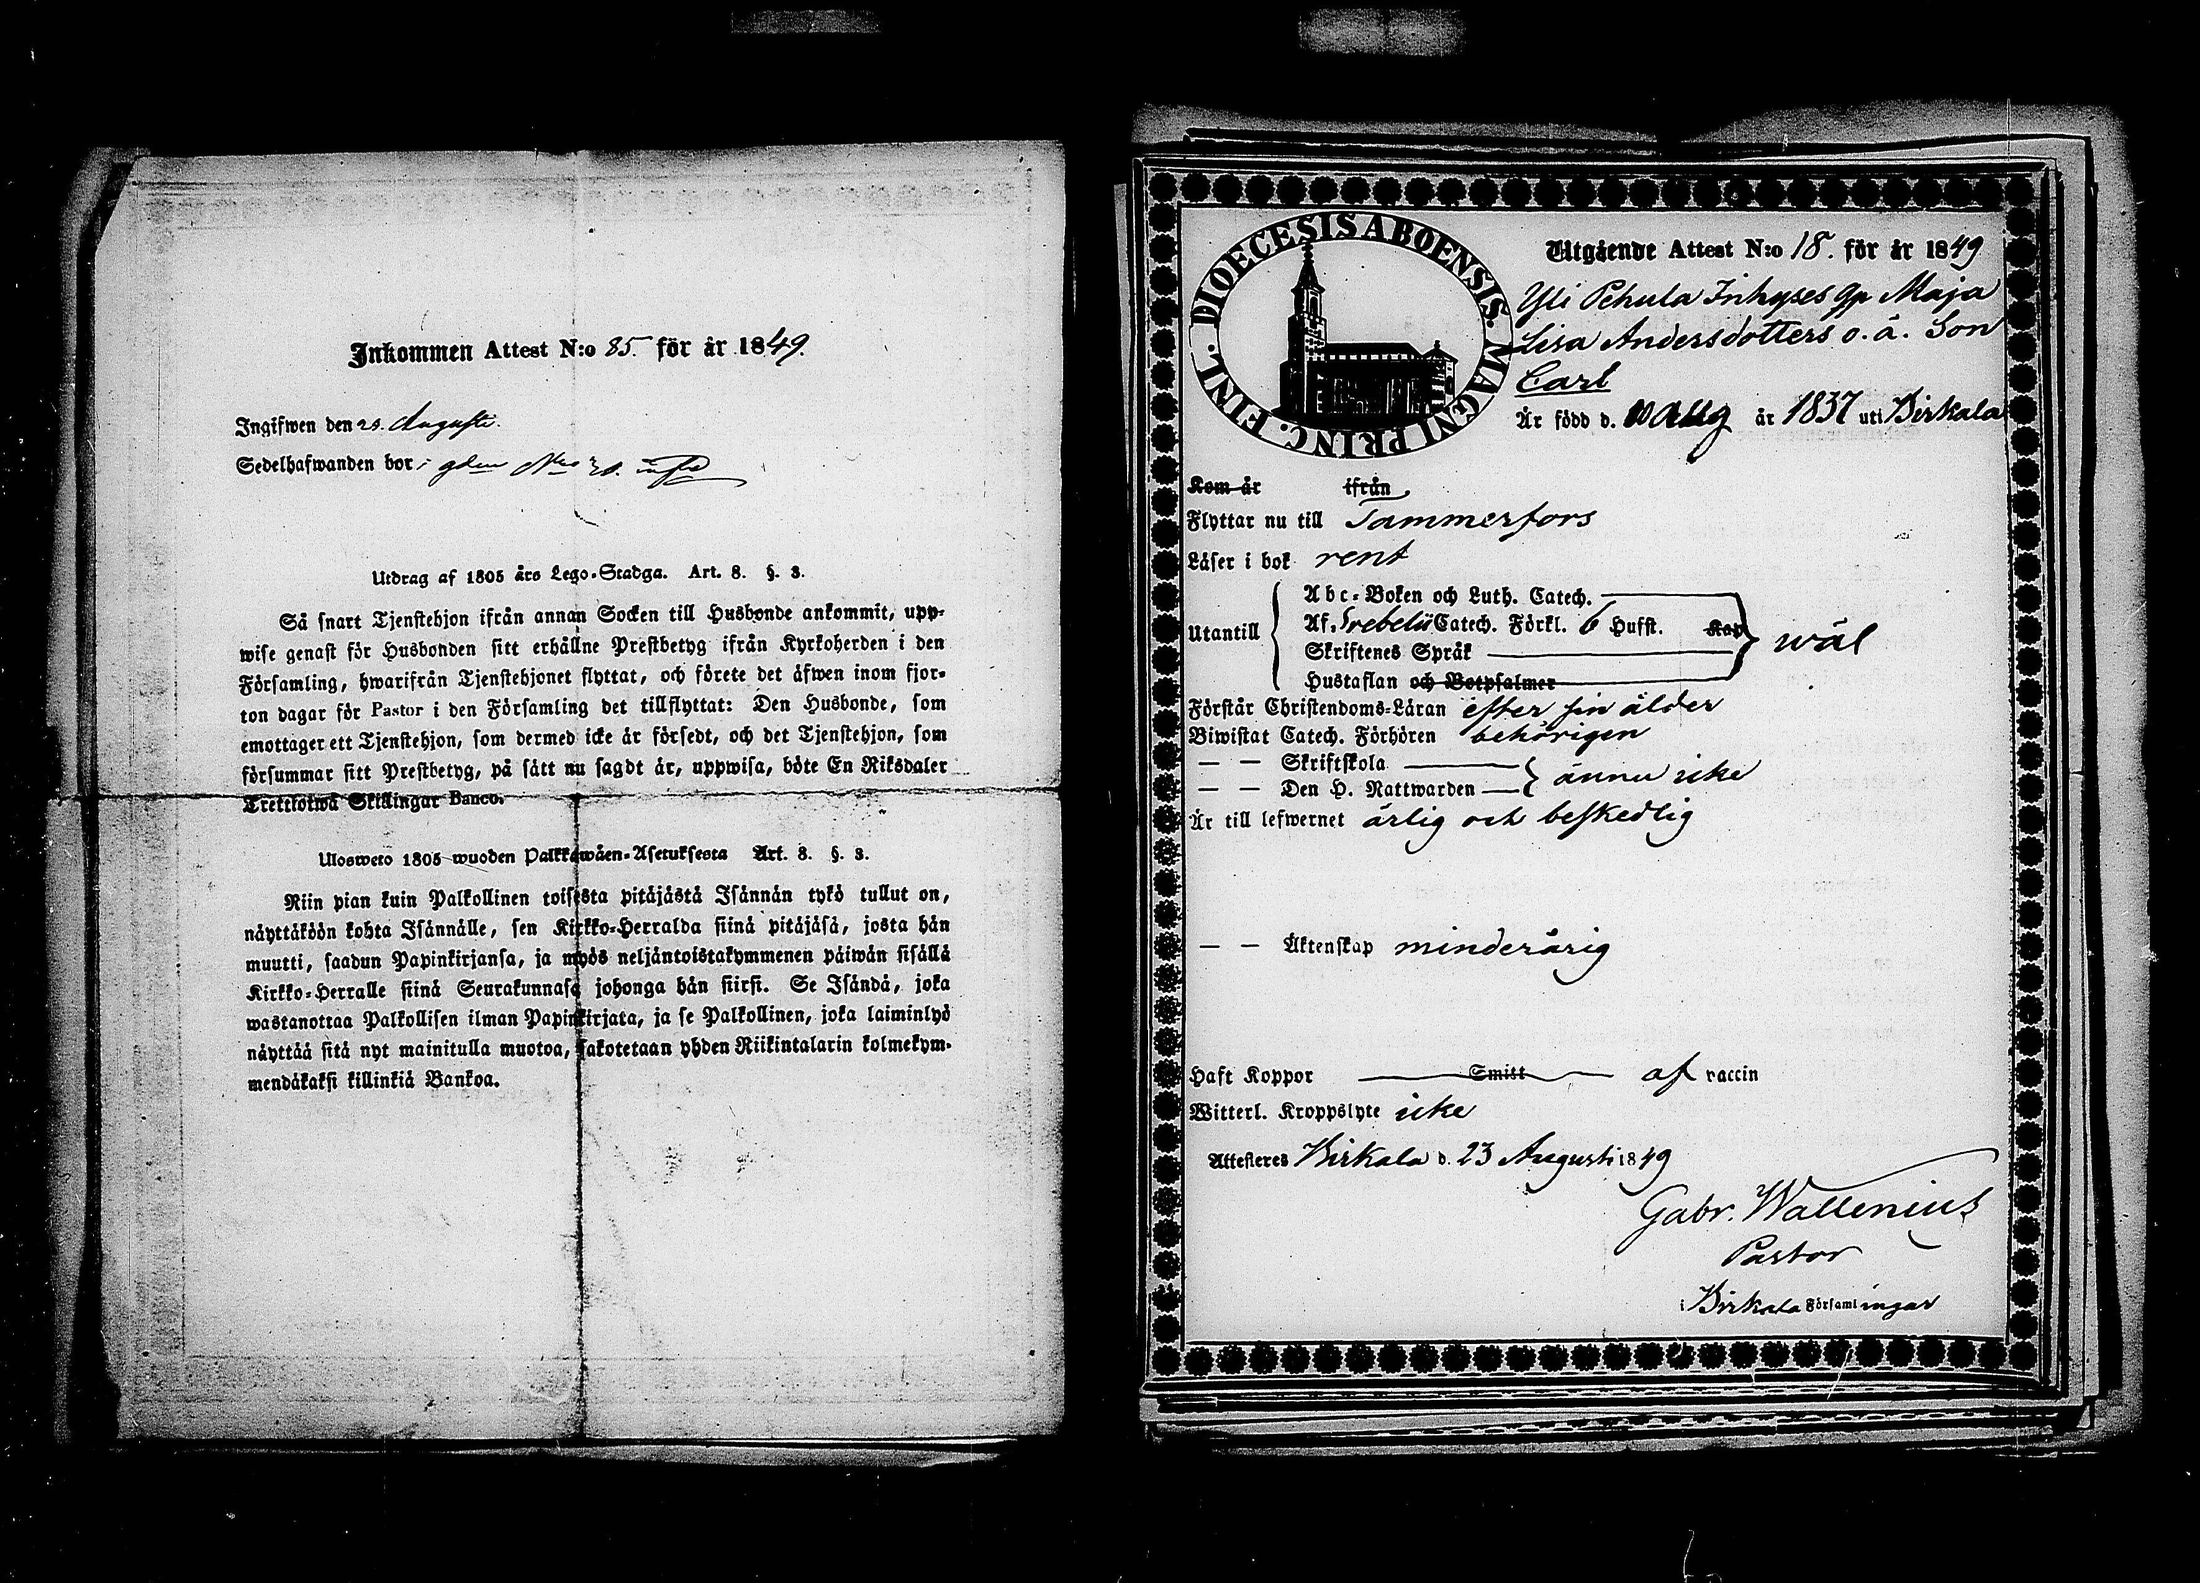 Inkommen Attest N:o 85. för år 1849.
Ingifwen den 28. Augusti.
Sedelhafwanden bor i gden N:o
Utdrag af 1805 års Lego-Stadga. Art. 8. §. 3.
Så snart Tjenstehjon ifrån annan Socken till Husbonde ankommit, upp-
wise genast för Husbonden sitt erhållne Prestbetyg ifrån Kyrkoherden i den
Församling, hwarifrån Tjenstehjonet flyttat, och förete det äfwen inom fjor-
ton dagar för Pastor i den Församling det tillflyttat: Den Husbonde, som
emottager ett Tjenstehjon, som dermed icke är försedt, och det Tjenstehjon, som
försummar sitt Prestbetyg, på sätt nu sagdt är, uppwisa, böte En Riksdaler
Trettiotwå Skillingar Banco.
Ulosweto 1805 wuoden Palkkawäen-Asetuksesta Art. 8. §. 3.
Niin pian kuin Palkollinen toisesta pitäjästä Isännän tykö tullut on,
näyttäköön kohta Isännälle, sen Kirkko-Herralda siinä pitäjäsä, josta hän
muutti, saadun Papinkirjansa, ja myös neljäntoistakymmenen päiwän sisällä
Kirkko-Herralle siinä Seurakunnasa johonga hän siirsi. Se Isändä, joka
wastanottaa Palkollisen ilman Papinkirjata, ja se Palkollinen, joka laiminlyö
näyttää sitä nyt mainitulla muotoa, sakotetaan yhden Riikintalarin kolmekym-
mendäkaksi killinkiä Bankoa.
FINL. DIOECESIS ABOENSIS. MAGNI PRINC.
Utgående Attest N:o 18. för år 1849
Yli Pehula Inhyses qp Maja
Lisa Andersdotters o. ä. Son
Carl
Är född d. Aug år 1837 uti Birkala
Kom år ifrån
Flyttar nu till Tammerfors
Läser i bok rent
Utantill
Abc-Boken och Luth. Catech.
Af. Trebelii Catech. Förkl. 6 Hufst. Kap
Skriftenes Språk
Hustaflan och Botpsalmer
wäl
Förstår Christendoms-Läran efter sin ålder
Biwistat Catech. Förhören behörigen
— — Skriftskola
— — Den H. Nattwarden
ännu icke
Är till lefwernet ärlig och beskedlig
— — Äktenskap minderårig
Haft Koppor Smitt af vaccin
Witterl. Kroppslyte icke
Attesteres Birkala d. 23 Augusti 1849
Gabr. Wallenius
Pastor
i Birkala Församlingar